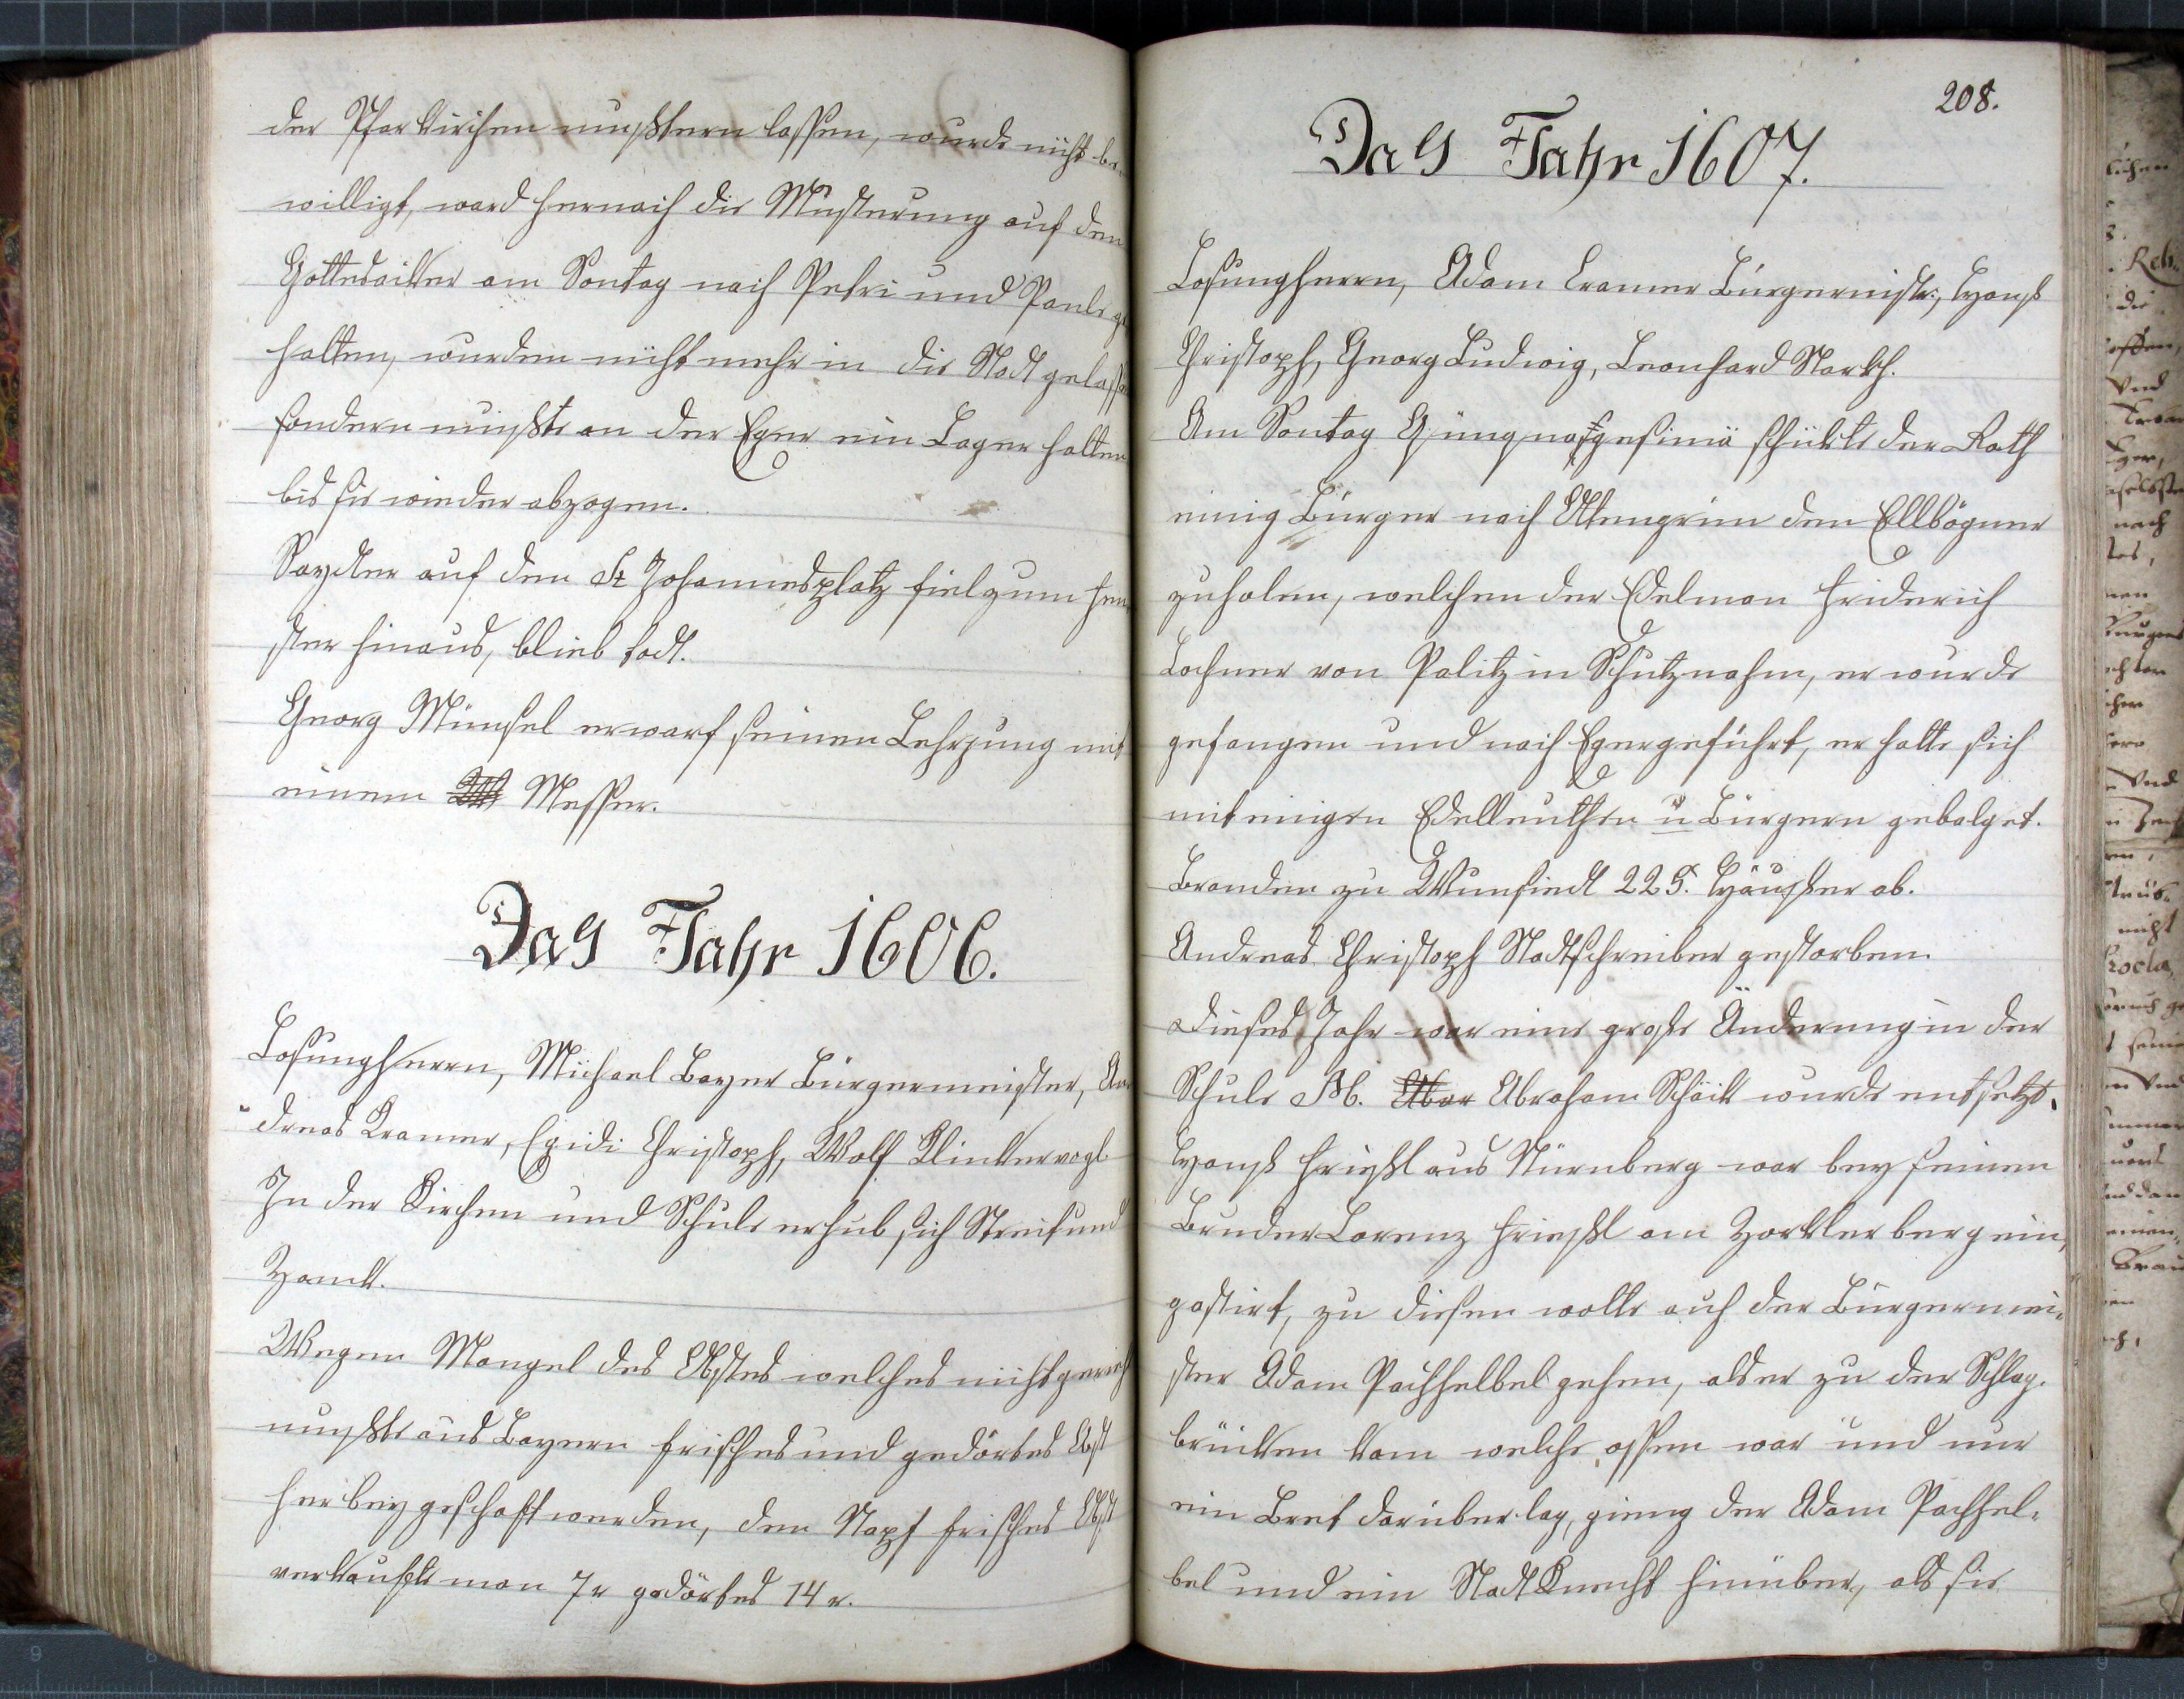 der Pfarkirchen mußtern lassen, wurde nicht be-
willigt, ward hernach die Musterung auf den
Gottesacker am Sontag nach Petri und Pauli ge
halten, wurden nicht mehr in die Stadt gelassen
sondern mußte an der Eger ein Lager halten
bis sie wieder abzogen.
auf den St Johannesplatz fiel zum Fen
ster hinaus, blieb todt.
Georg Münsel erwarf seinen Lehrjung mit
einem Messer.
Das Jahr 1606.
Losungherrn, Michael Bayer Bürgermeister, An
dreas Kramer, Egidi Christoph, Wolf Klinkervogl
In der Kirchen und Schule erhub sich Streit und
Zanck.
Wegen Mangel des Obstes welches nicht gerieth
mußte aus Bayern frisches und gedörtes Obst
herbey geschaft werden, den Napf frisches Obst
verkaufte man 7 x gedörtes 14 x.
208.
Das Jahr 1607.
Losungherrn, Adam Cramer Bürgermeistr., Hanß
Christoph, Georg Ludwig, Leonhard Stark.
Am Sontag Quinquagesimä schickte der Rath
einig Bürger nach Ottengrün den Ellbögner
zuholen, welchen der Edelman Friderich
Lochner von Palitz in Schutz nahm, er wurde
gefangen und nach Eger geführt, er hatte sich
mit einigen Edelleuthen u Bürgern gebalget.
Branden zu Wunsiedl 225. Häußer ab.
Andreas Christoph Stadtschreiber gestorben.
Dieses Jahr war eine große Änderung in der
Schule M. Abraham Schäck wurde entsetzt.
Hanß Frießl aus Nürnberg war bey seinen
Bruder Lorenz Frießl am Zorkler berg ein,
gastirt, zu diesen wolte auch der Bürgermei,
ster Adam Pachhelbel gehen, als er zu der Schlag.
brücken kam welche offen war und nur
ein Bret darüber lag, gieng der Adam Pachhel,
bel und ein Stadt Knecht hinüber, als sie